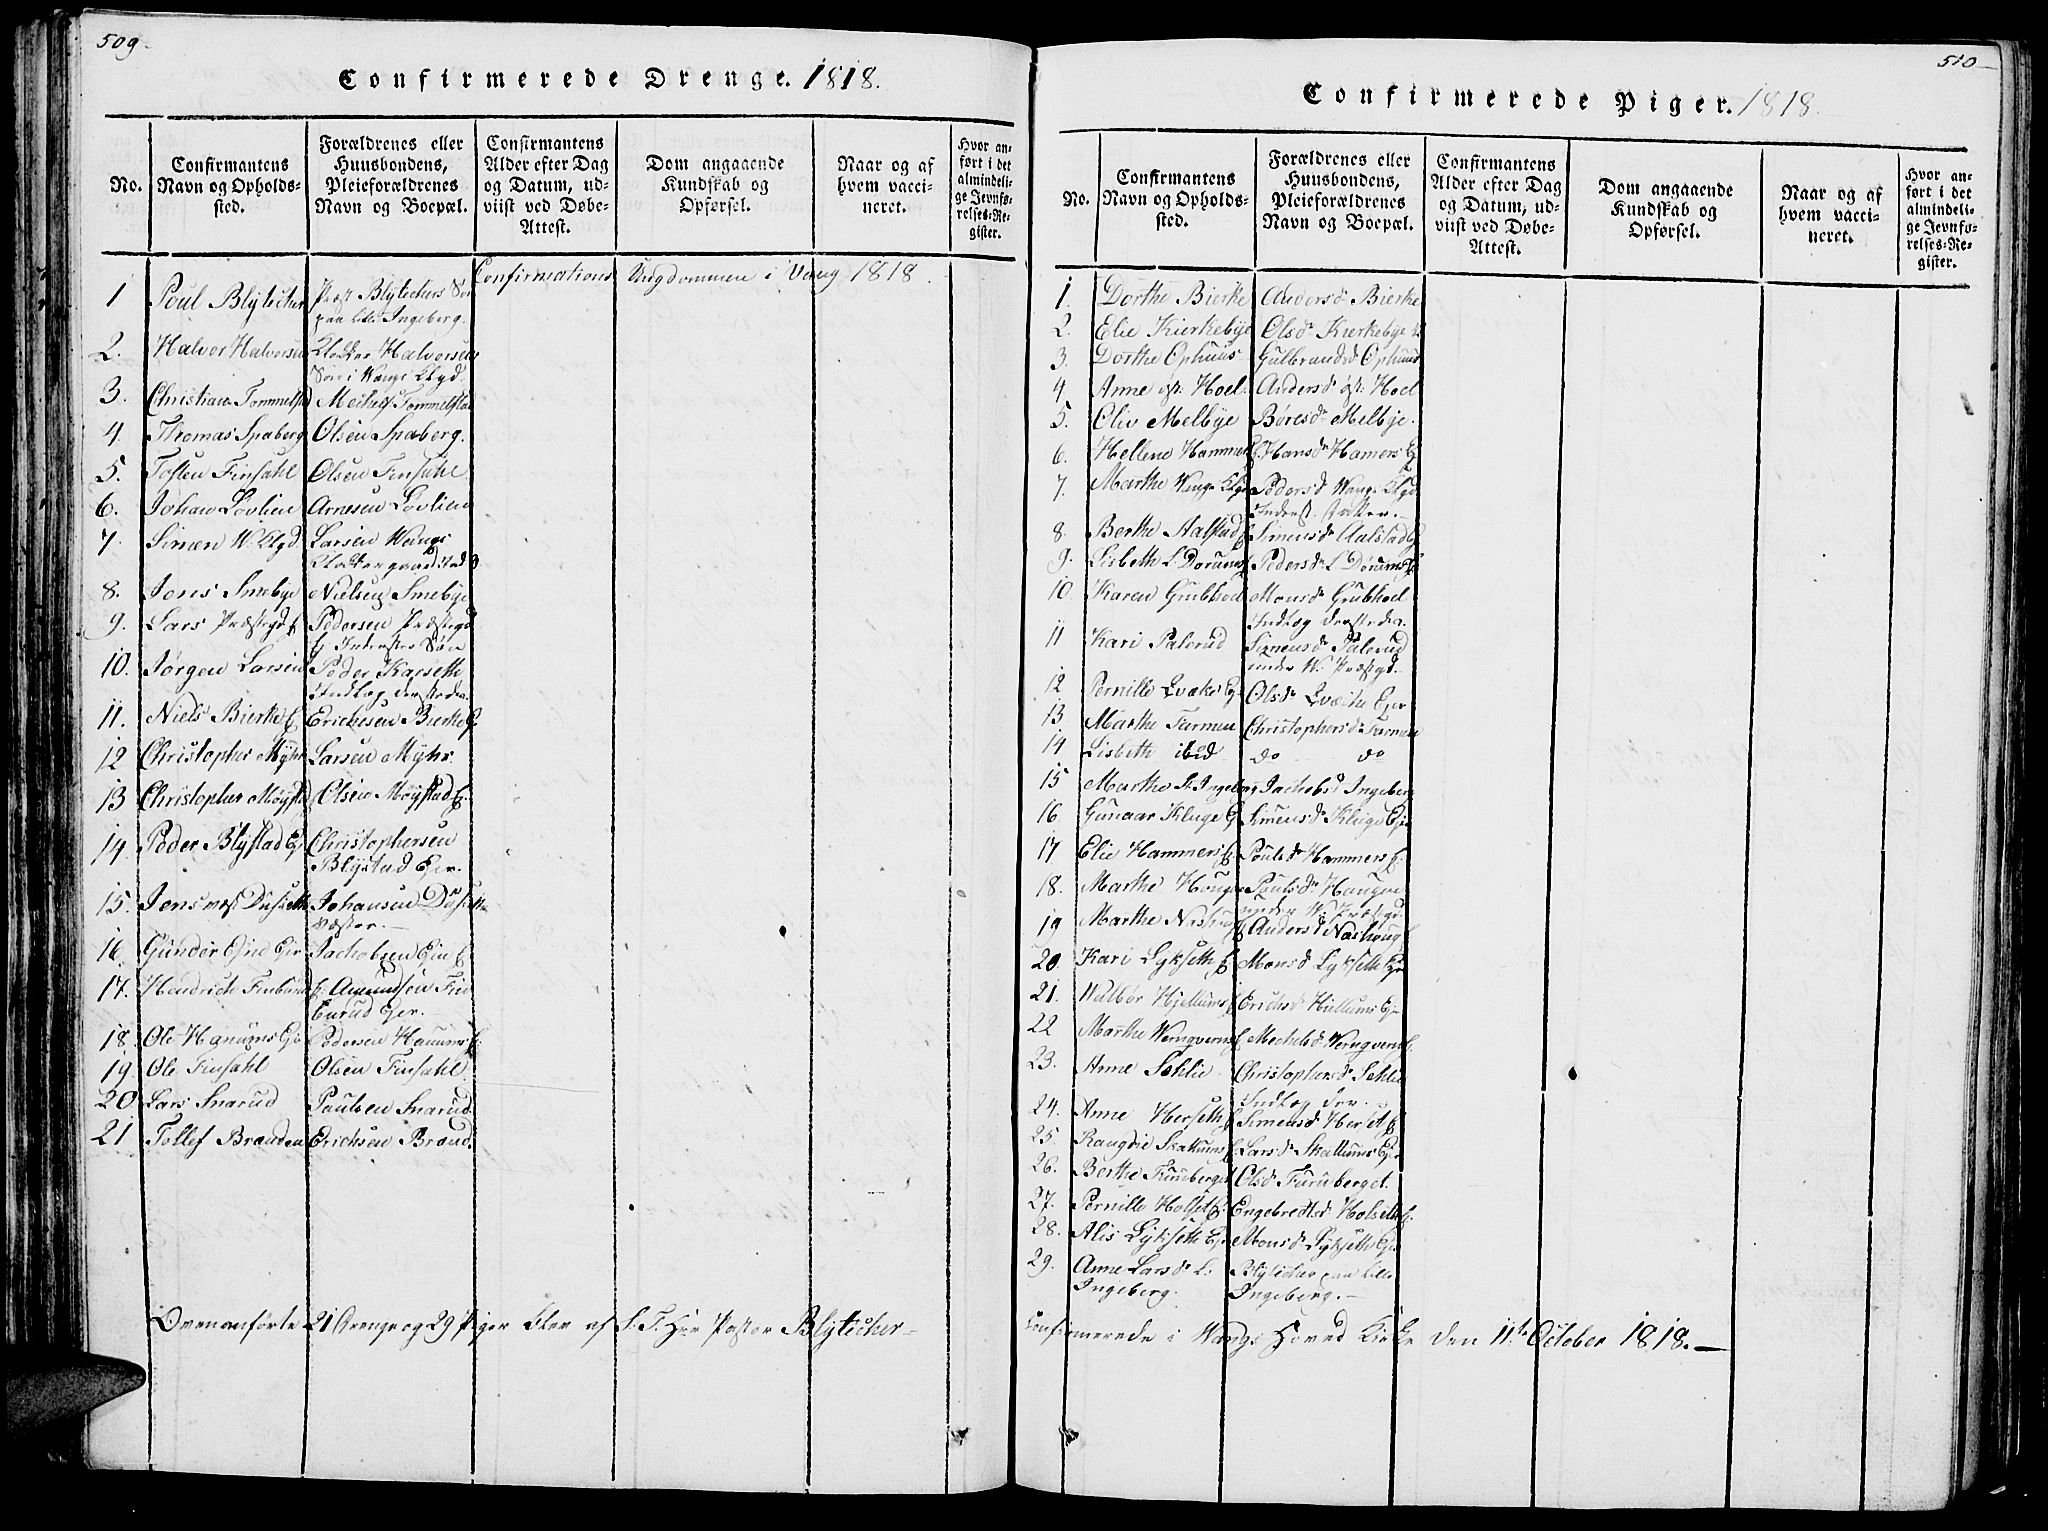 509.
Confirmerede Drenge. 1818.
No.
Confirmantens
Navn og Opholds-
sted.
Forældrenes eller
Huusbondens,
Pleieforældrenes
Navn og Boepæl.
Confirmantens
Alder efter Dag
og Datum, ud-
viist ved Døbe-
Attest.
Dom angaaende
Kundskab og
Opførsel.
Naar og af
hvem vacci-
neret.
Hvor an-
ført i det
almindeli-
ge Jevnfø-
relses-Re-
gister.
Confirmations Ungdommen i Vang 1818.
1 Poul Blytecher Præst Blytechers Søn
paa Lille Ingeberg.
2. Halvor Halvorsen Klokker Halvorsens
Søn i Wangs Klgd.
3. Christian Tommelstad Michels. Tommelstad
4. Thomas Spaberg Olsen Spaberg.
5. Tosten Finsahl Olsen Finsahl
6. Johan Lovlien Arnesen Lovlien
7. Simen W. Klgd Larsen Wangs
Klokkergaard
8. Jons Smebye Nielsen Smebye
9. Lars Præstegd E Pedersen Præstegd
E Inderstes Søn
10. Jørgen Larsen Peder Kapseth
Indlæg dersteder.
11. Niels Bierke E Erichsen Bierke E
12 Christopher Myhr Larsen Myhr.
13 Christopher Møystad Olsen Møystad E.
14. Peder Blystad Ej Christophersen
Blystad Ejer.
15. Jens Dyseth Johansen Dyseth
Vester.
16. Gunder Ejne Ejer Jachobsen Ejne E
17. Hendrich E. Amundsen Fin
Eurud Ejer.
18. Ole Hanums Eje Pedersen Hanums E.
19 Ole Finsahl Olsen Finsahl
20 Lars Snarud Paulsen Snarud
21 Tollef Brænden Erichsen Brænd.
Ovenanførte 21 Drenge og 29 Piger blev af S. T. Hr Pastor Blytecher
510
Confirmerede Piger. 1818.
No.
Confirmantens
Navn og Opholds-
sted.
Forældrenes eller
Huusbondens,
Pleieforældrenes
Navn og Boepæl.
Confirmantens
Alder efter Dag
og Datum, ud-
viist ved Døbe-
Attest.
Dom angaaende
Kundskab og
Opførsel.
Naar og af
hvem vacci-
neret.
Hvor an-
ført i det
almindeli-
ge Jevnfø-
relses-Re-
gister.
1. Dorthe Bierke Andersd Bierke
2. Elie Kierkebye Olsdr Kierkebye
3. Dorthe Ophuus Gulbrandsd Ophuus
4 Anne øst. Hoel Andersdr øst. Hoel
5. Oliv Melbye Børesdr Melbye.
6. Hellene Hammer E Hansdr Hamers E
7. Marthe Wangs Klgd Pedersd Wangs Klgd
Inderst.
8. Berthe Aalstad E Simensdr Aalstad E
9. Lisbeth L Dorums E Pedersdr L Dorums E
10. Karen Grubhoel Monsdr Grubhoel
Indlæg dersteder.
11 Kari Palerud Simensdr Palerud
under W. Præstgd.
12 Pernille Qvæke Ej. Olsdr Qvæche Ejer
13 Marthe Farmen Christophersdr Farmen
14 Lisbeth ibid do do
15 Marthe St. Ingeberg Jachobsd Ingeberg
16. Gunaar Kluge E Simensdr Kluge Ejer
17 Elie Hammers E. Poulsdr Hammers E.
18. Marthe Hougen Paulsdr Haugen
under W. Præstgd.
19 Marthe Nashoug E Andersd Nashoug E
20 Kari Lykseth E Monsd Lykseth Ejer
21. Walbør Hjellums E Erichsd Hiellums Eje
22 Marthe Werngverns E Mechelsd Werngverns E.
23. Anne Sehlie Christophersd Sehlie
Indlæg der.
24. Anne Herseth E Simensdr Herset E
25. Rangdie Skattums E Larsdr Skattums Ejer
26. Berthe Furuberget Olsd Furuberget.
27. Pernille Holset E. Engebrethsd Holseth E.
28. Alis Lykseth Eje Monsd Lykseth Eje
29. Anne Larsdr L. Blytecher paa Lille
Ingeberg. Ingeberg.
Confirmerede i Wangs Hoved Kirke den 11te October 1818.